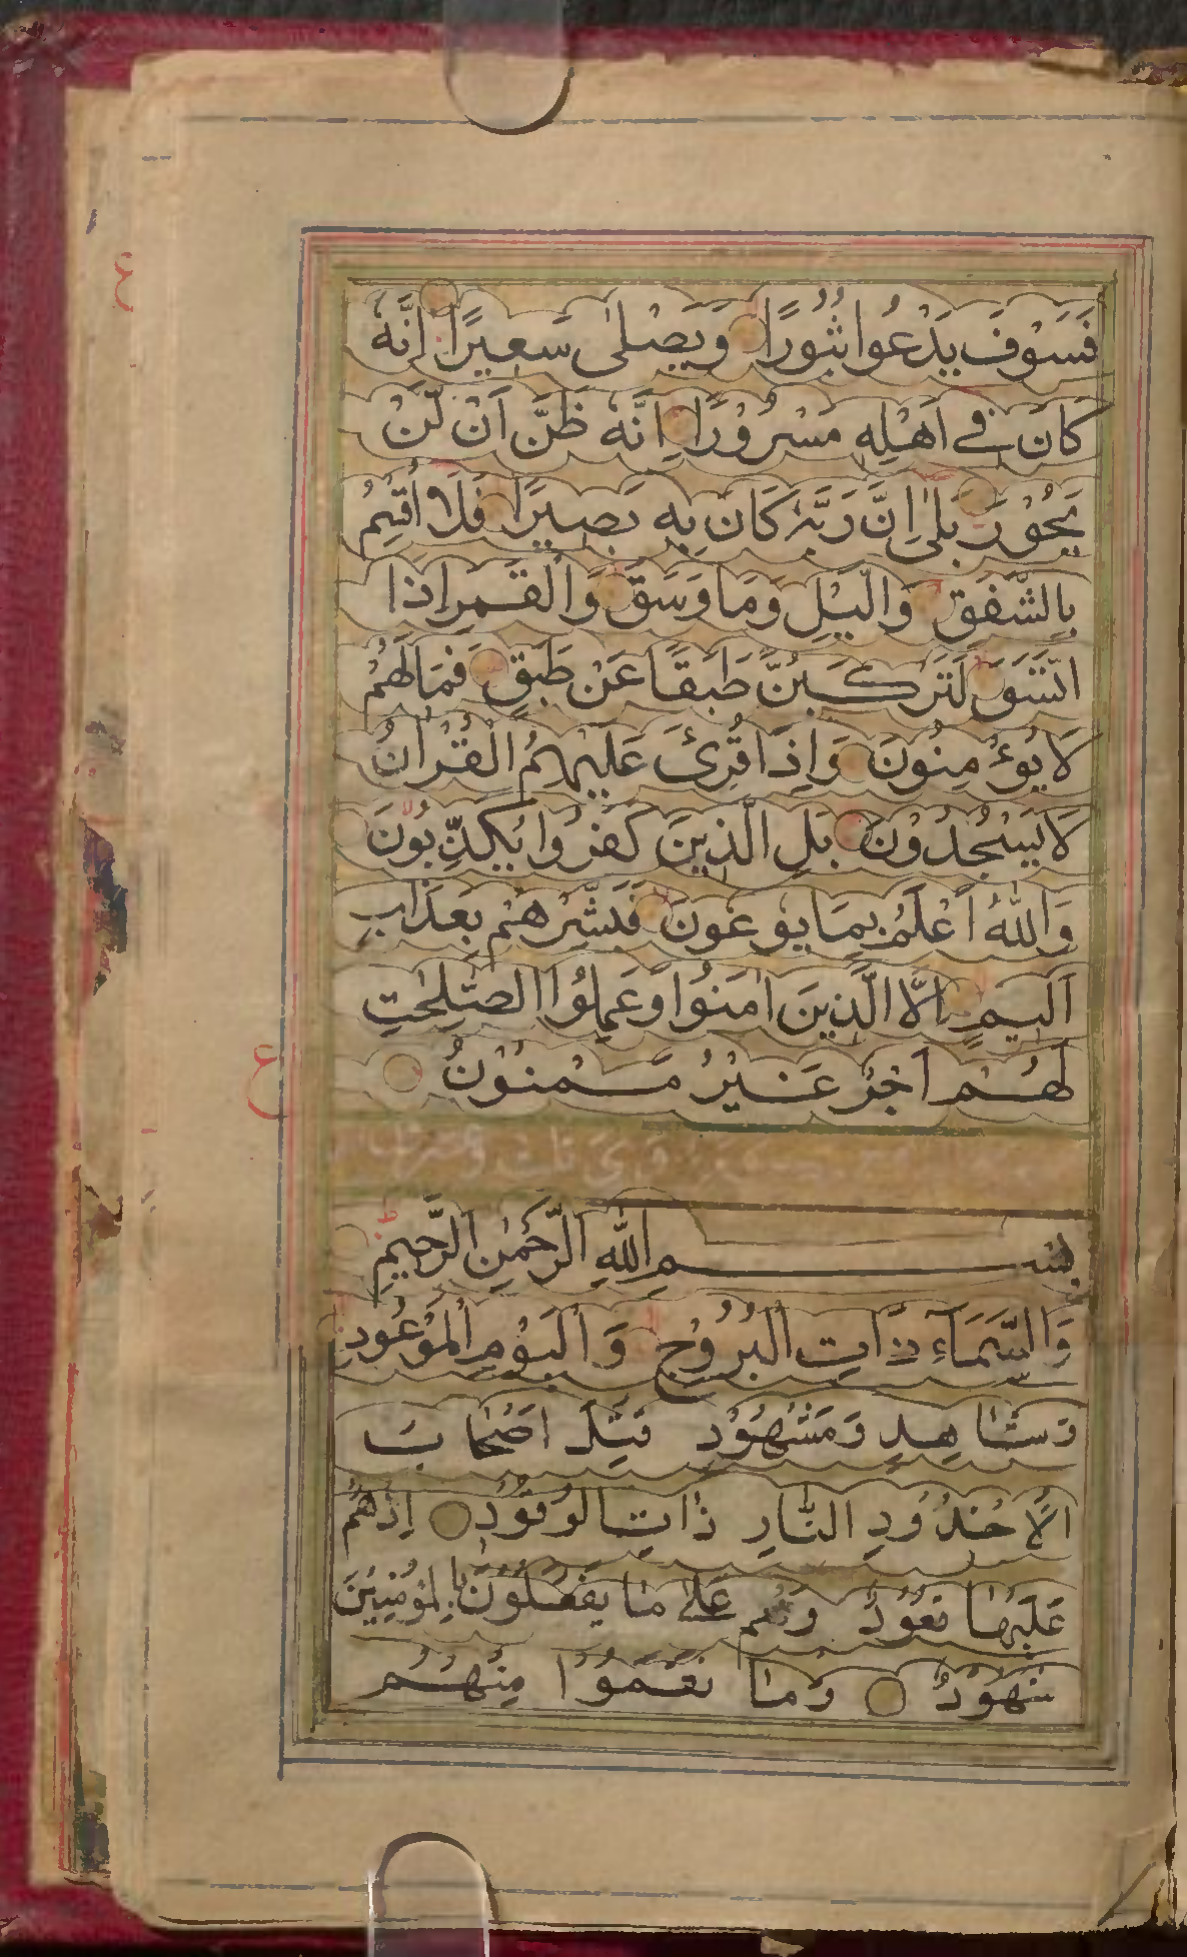 فَسَوْفَ يَدْعُوا ثُبُورًا وَيَصْلٰى سَعِيرًا اِنَّهُ
كَانَ فِے اَهْلِهٖ مَسْرُوْرًا اِنَّهُ ظَنَّ اَنْ لَّنْ
يَحُوْرَ بَلٰى اِنَّ رَبَّهُ كَانَ بِهٖ بَصِيرًا فَلَا اُقْسِمُ
بِالشَّفَقِ وَالَّيْلِ وَمَا وَسَقَ وَالْقَمَرِ اِذَا
اتَّسَقَ لَتَرْكَبُنَّ طَبَقًا عَنْ طَبَقٍ فَمَا لَهُمْ
لَا يُؤْمِنُونَ وَاِذَا قُرِئَ عَلَيْهِمُ الْقُرْاٰنُ
لَا يَسْجُدُوْنَ بَلِ الَّذِينَ كَفَرُوا يُكَذِّبُوْنَ
وَاللّٰهُ اَعْلَمُ بِمَا يُوعُونَ فَبَشِّرْهُمْ بِعَذَابٍ
اَلِيمٍ اِلَّا الَّذِينَ اٰمَنُوْا وَعَمِلُوا الصّٰلِحٰتِ
لَهُمْ اَجْرٌ غَيْرُ مَمْنُوْنٌ
بِسْمِ اللّٰهِ الرَّحْمٰنِ الرَّحِيمِ
وَالسَّمَاءِ ذَاتِ الْبُرُوْجِ وَالْيَوْمِ الْمَوْعُودِ
وَشَاهِدٍ وَمَشْهُوْدٍ قُتِلَ اَصْحَابُ
الْاُخْدُوْدِ النَّارِ ذَاتِ الْوَقُوْدِ اِذْهُمْ
عَلَيْهَا قُعُوْدٌ وَهُمْ عَلٰى مَا يَفْعَلُوْنَ بِالْمُؤْمِنِيْنَ
شُهُوْدٌ وَمَا نَقَمُوْا مِنْهُمْ
ع
ع